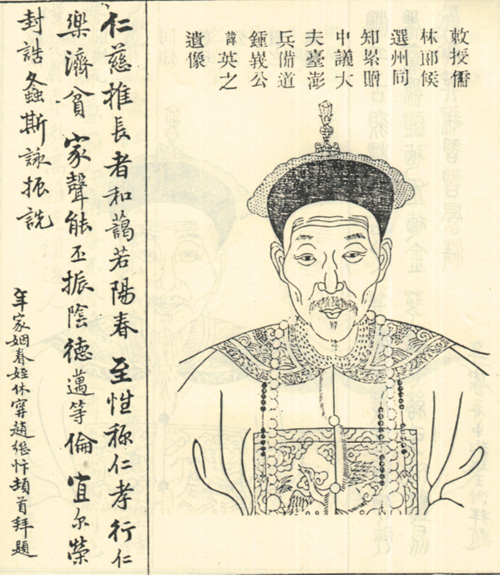 敕授儒
林郎候
選州同
知累贈
中議大
夫臺澎
兵備道
鍾異公
諱英之
遺像
仁慈推長者和藹若陽春至性称仁孝行仁
樂濟貧家聲能丕振陰德邁等倫宜尔榮
封誥螽斯詠振詵
年家姻眷姪休寗趙繼忭頓首拜題